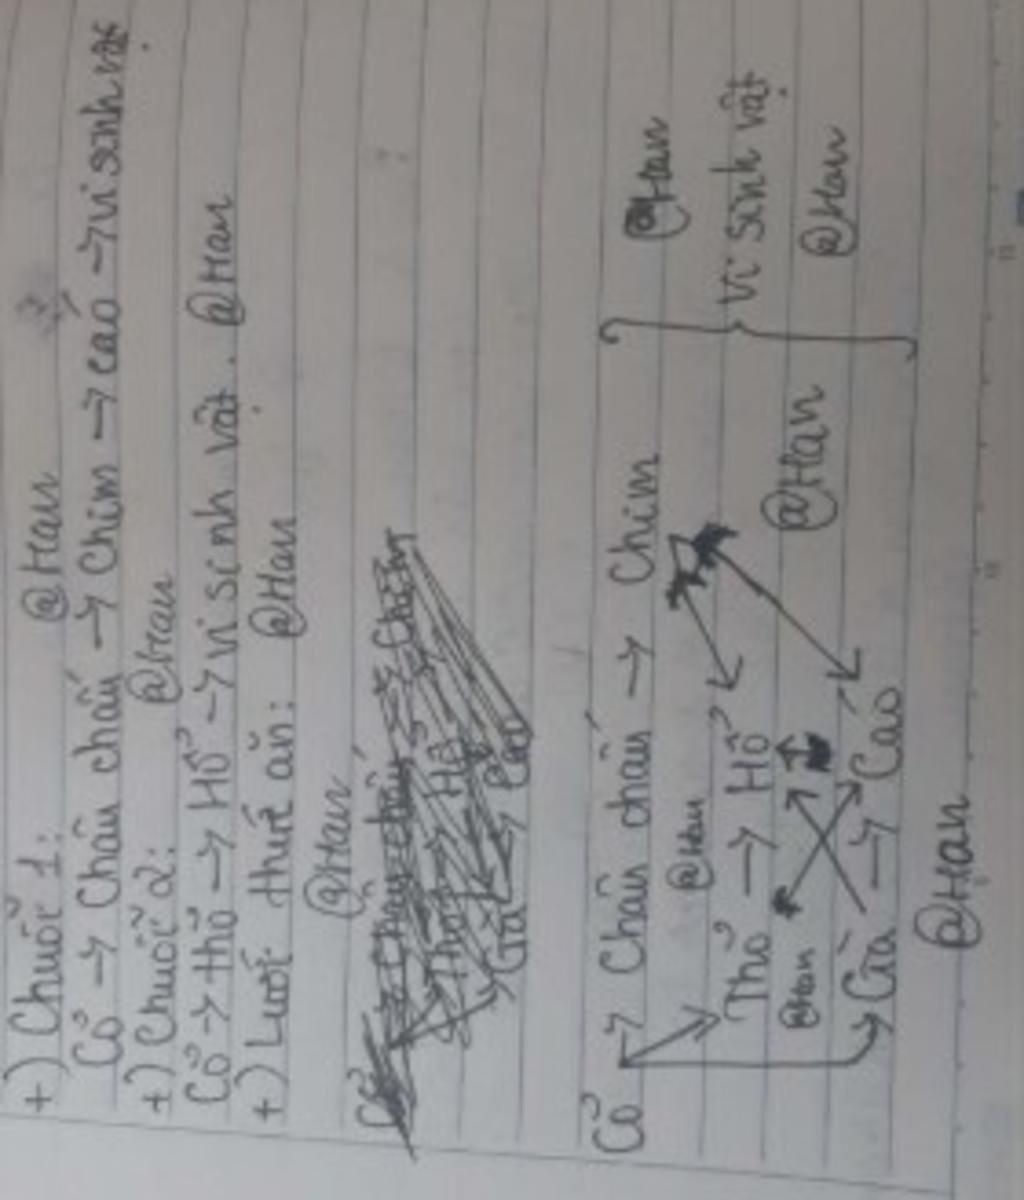 +) Chuỗi 1:
@Han
Cỏ → Châu chấu → Chim → cáo → vi sinh vật
+) Chuỗi 2:
@Han
Cỏ → thỏ → Hổ → vi sinh vật. @Han
+) Lưới thức ăn:
@Han
@Han
Cỏ → Châu chấu → Chim
@Han
@Han
Thỏ → Hổ
vi sinh vật
@Han
@Han
@Han
Gà → Cáo
@Han